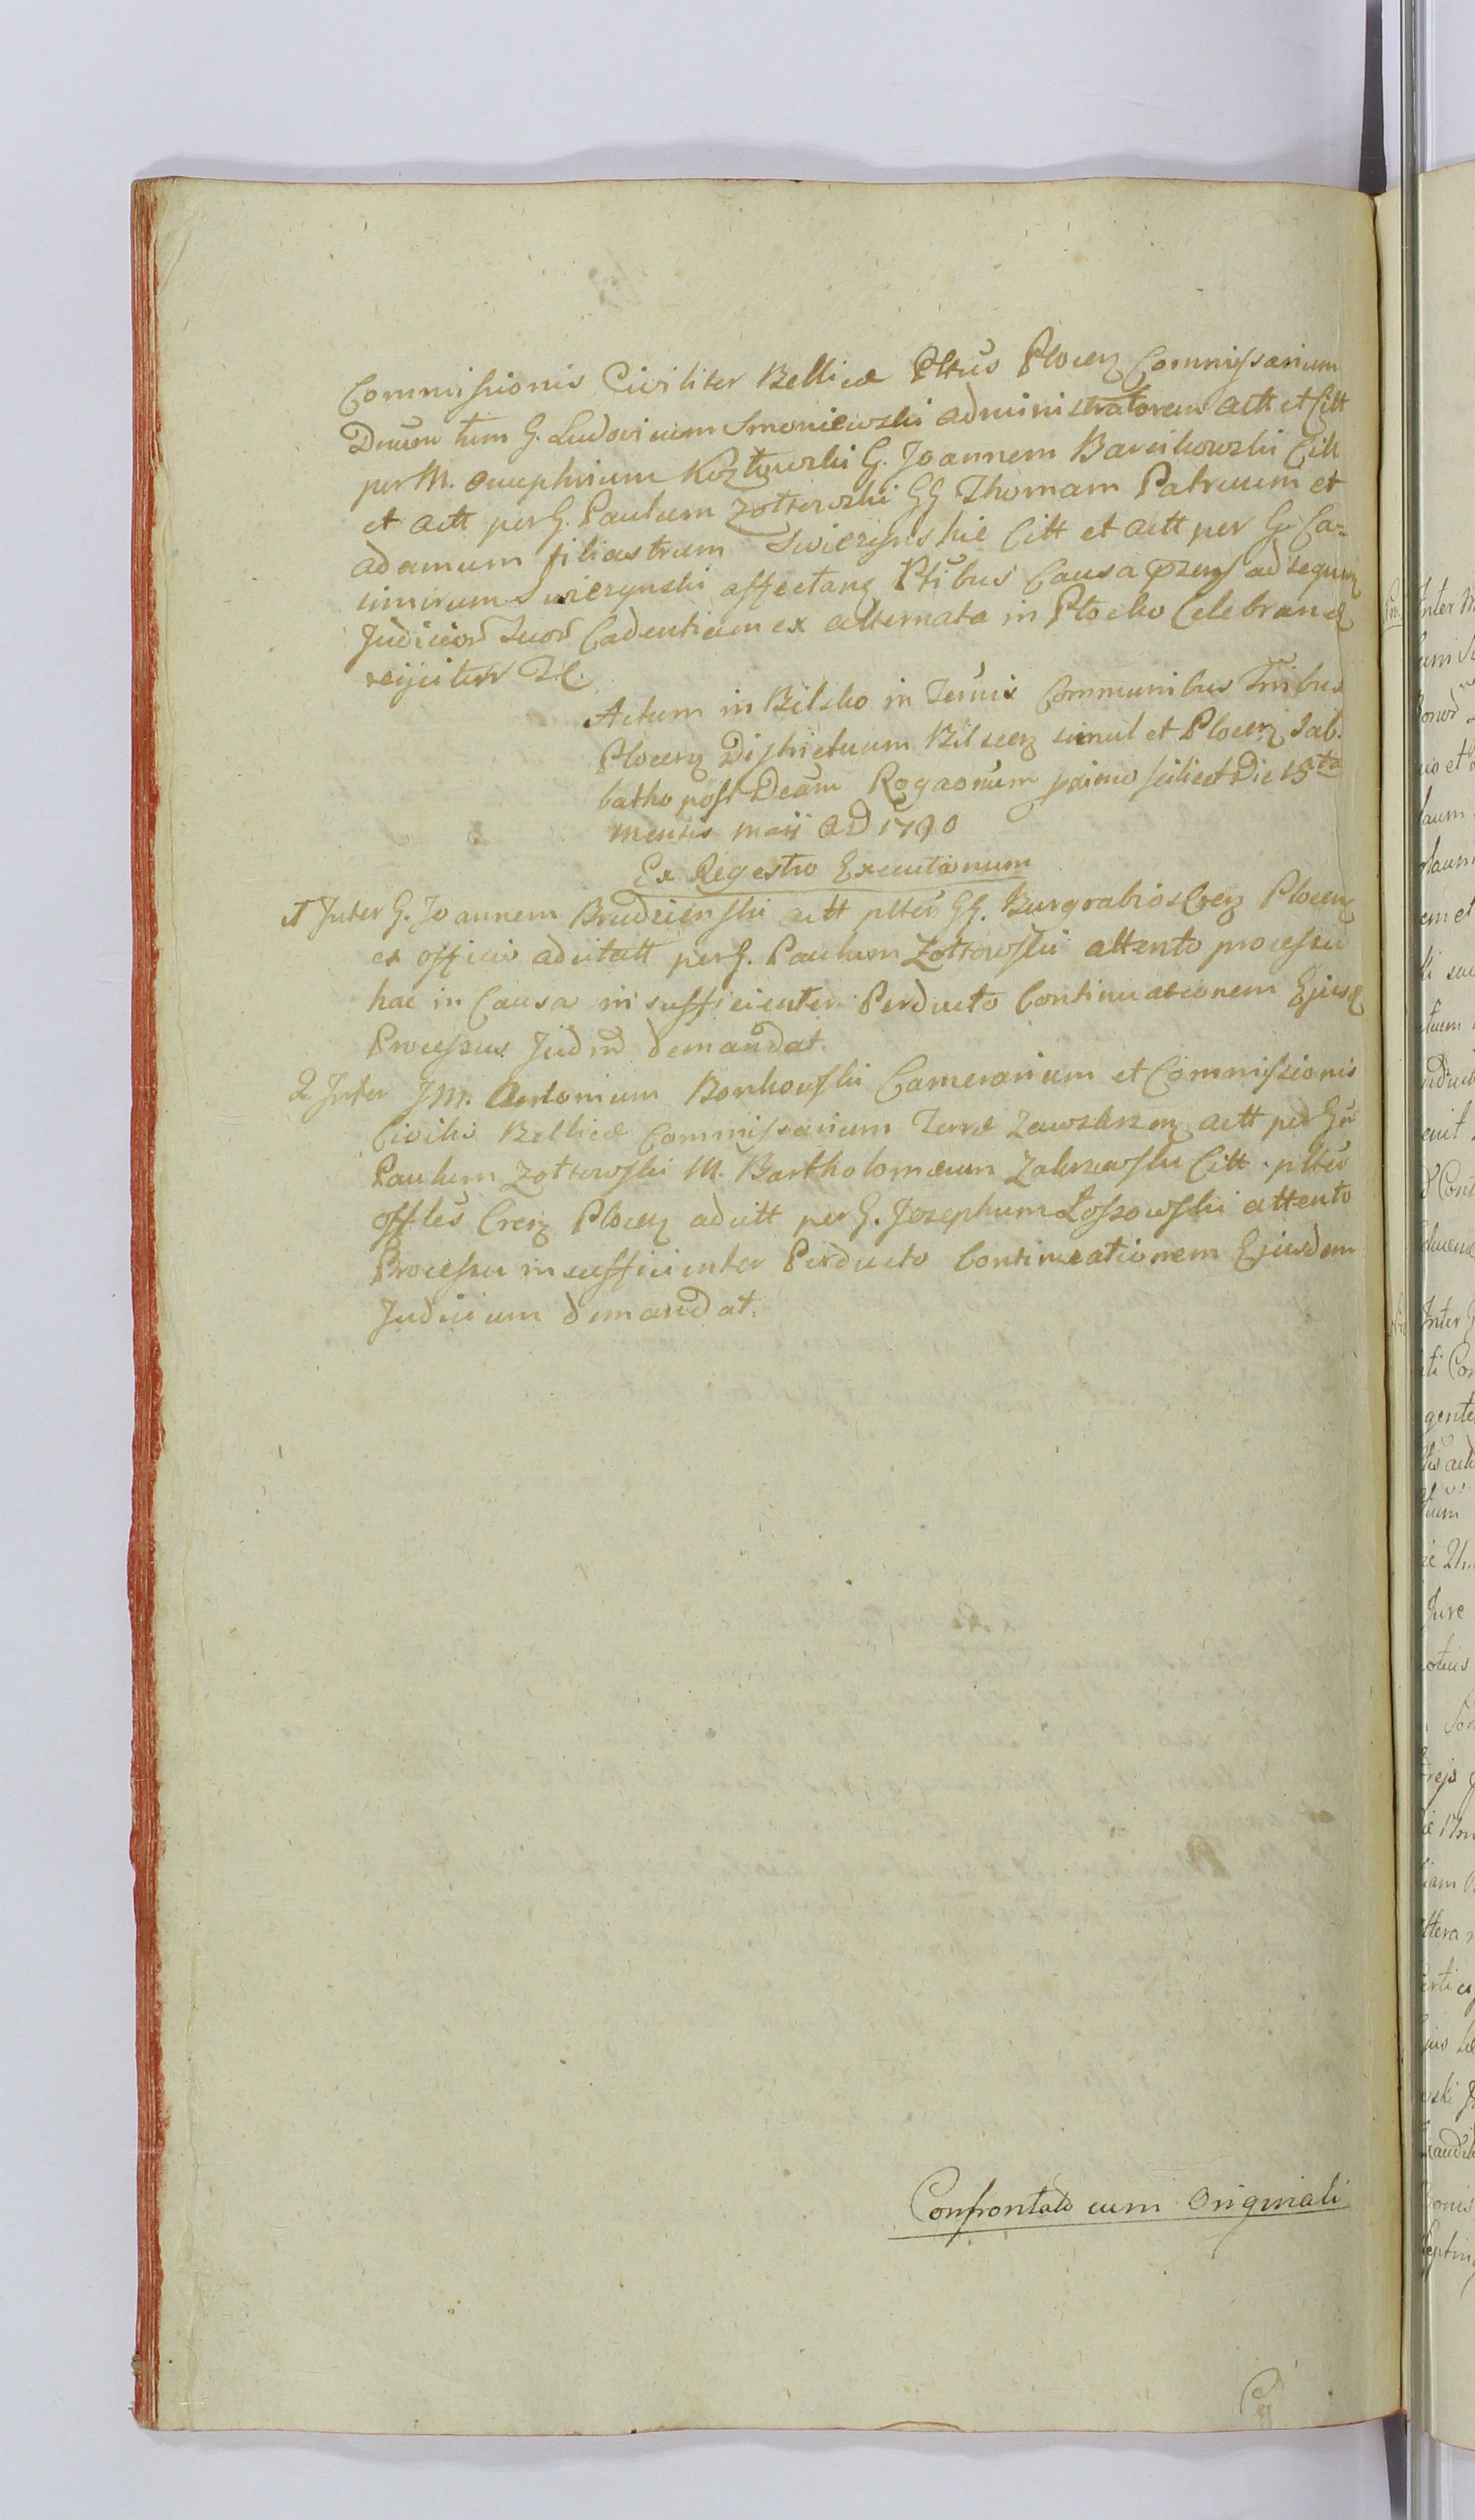 Commissionis Civiliter Bellicae Pltus Plocen Commissarium
Dnum tum G. Ludovicum Smoniewski administratorem actt et Citt
per M. Onuphrium Kozłowski G. Joannem Barcikowski Citt
et actt per G. Paulum Zołtowski GG Thomam Patruum et
Adamum filiastrum Swierzynskie Citt et actt per G. Ca-
simirum Swierzynski affectang Ptibus Causa ad sequen
Judicior Suor Cadentiam ex alternata in Płocko Celebrand
reijcitur
Actum in Bielsko in Termis Communibus Trribus
Plocen Districtuum Bilscen simul et Plocen Sab-
batho post Dcam Rogaonum primo scilicet Die 15ta
mensis maij AD 1790
Ex Regestro Executionum
1 Inter G. Joannem Brudzienski actt pltus GG. Burgrabios Cren Plocen
ex officio ad citatt per G. Paulum Zołtowski attento processu
hac in Causa insufficienter Perducto Continuationem Ejusd
Processus Judm demandat.
2 Inter JM. Antonium Bonkowski Camerarium et Commissionis
Civilis Bellicae Commissarium Terrae Zawskrzen actt per Gm
Paulum Zołtowski M. Bartholomaeum Zakrzewski Citt pltus
offles Cren Plocen ad citt per G. Josephum Lossowski attento
Processu insufficienter Perducto Continuationem Ejusdem
Judicium demandat.
Confrontato cum Originali
Inter M
Inter G
Jure